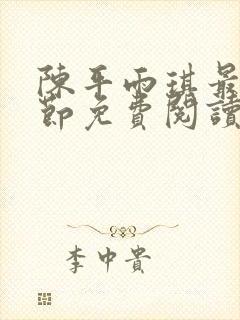 陳平雨琪最
節免費閱讀
李中貴